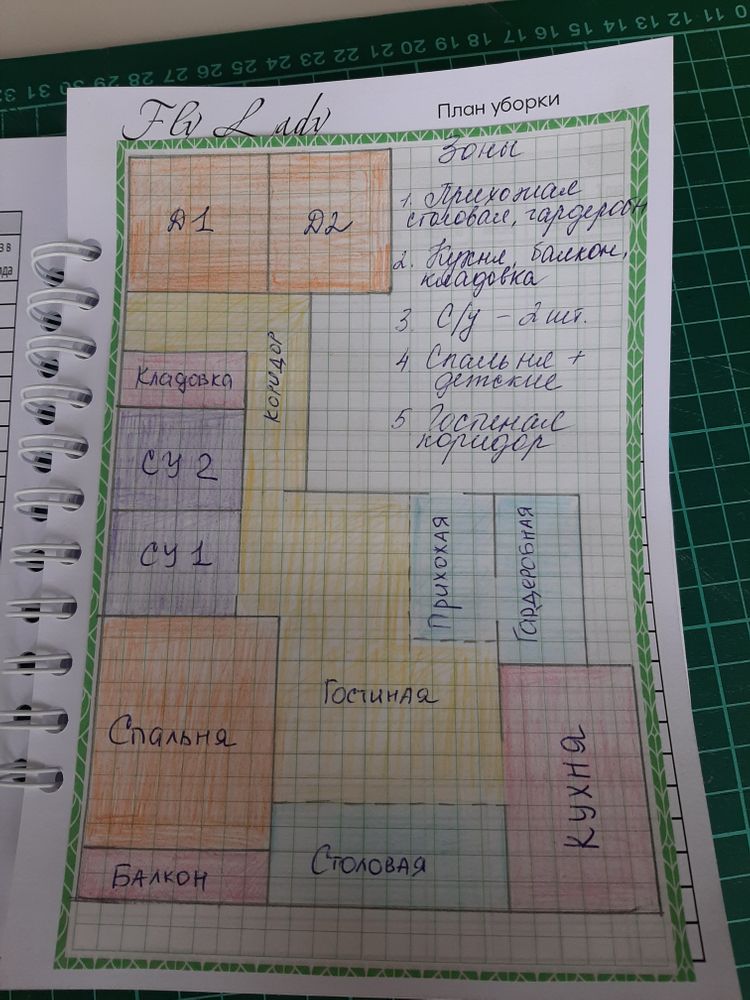 31 30 29 28 27 26 25 24 23 22 21 20 19 18 17 16 15 14 13 12 11 10
Fly Lady
План уборки
Зоны
1. Прихожая
столовая, гардеробн
2. Кухня, балкон,
кладовка
3 С/у – 2 шт.
4 Спальня +
детские
5 Гостиная
коридор
Д1
Д2
коридор
Кладовка
СУ 2
СУ 1
Прихожая
Гардеробная
Гостиная
Спальня
Кухня
Столовая
Балкон